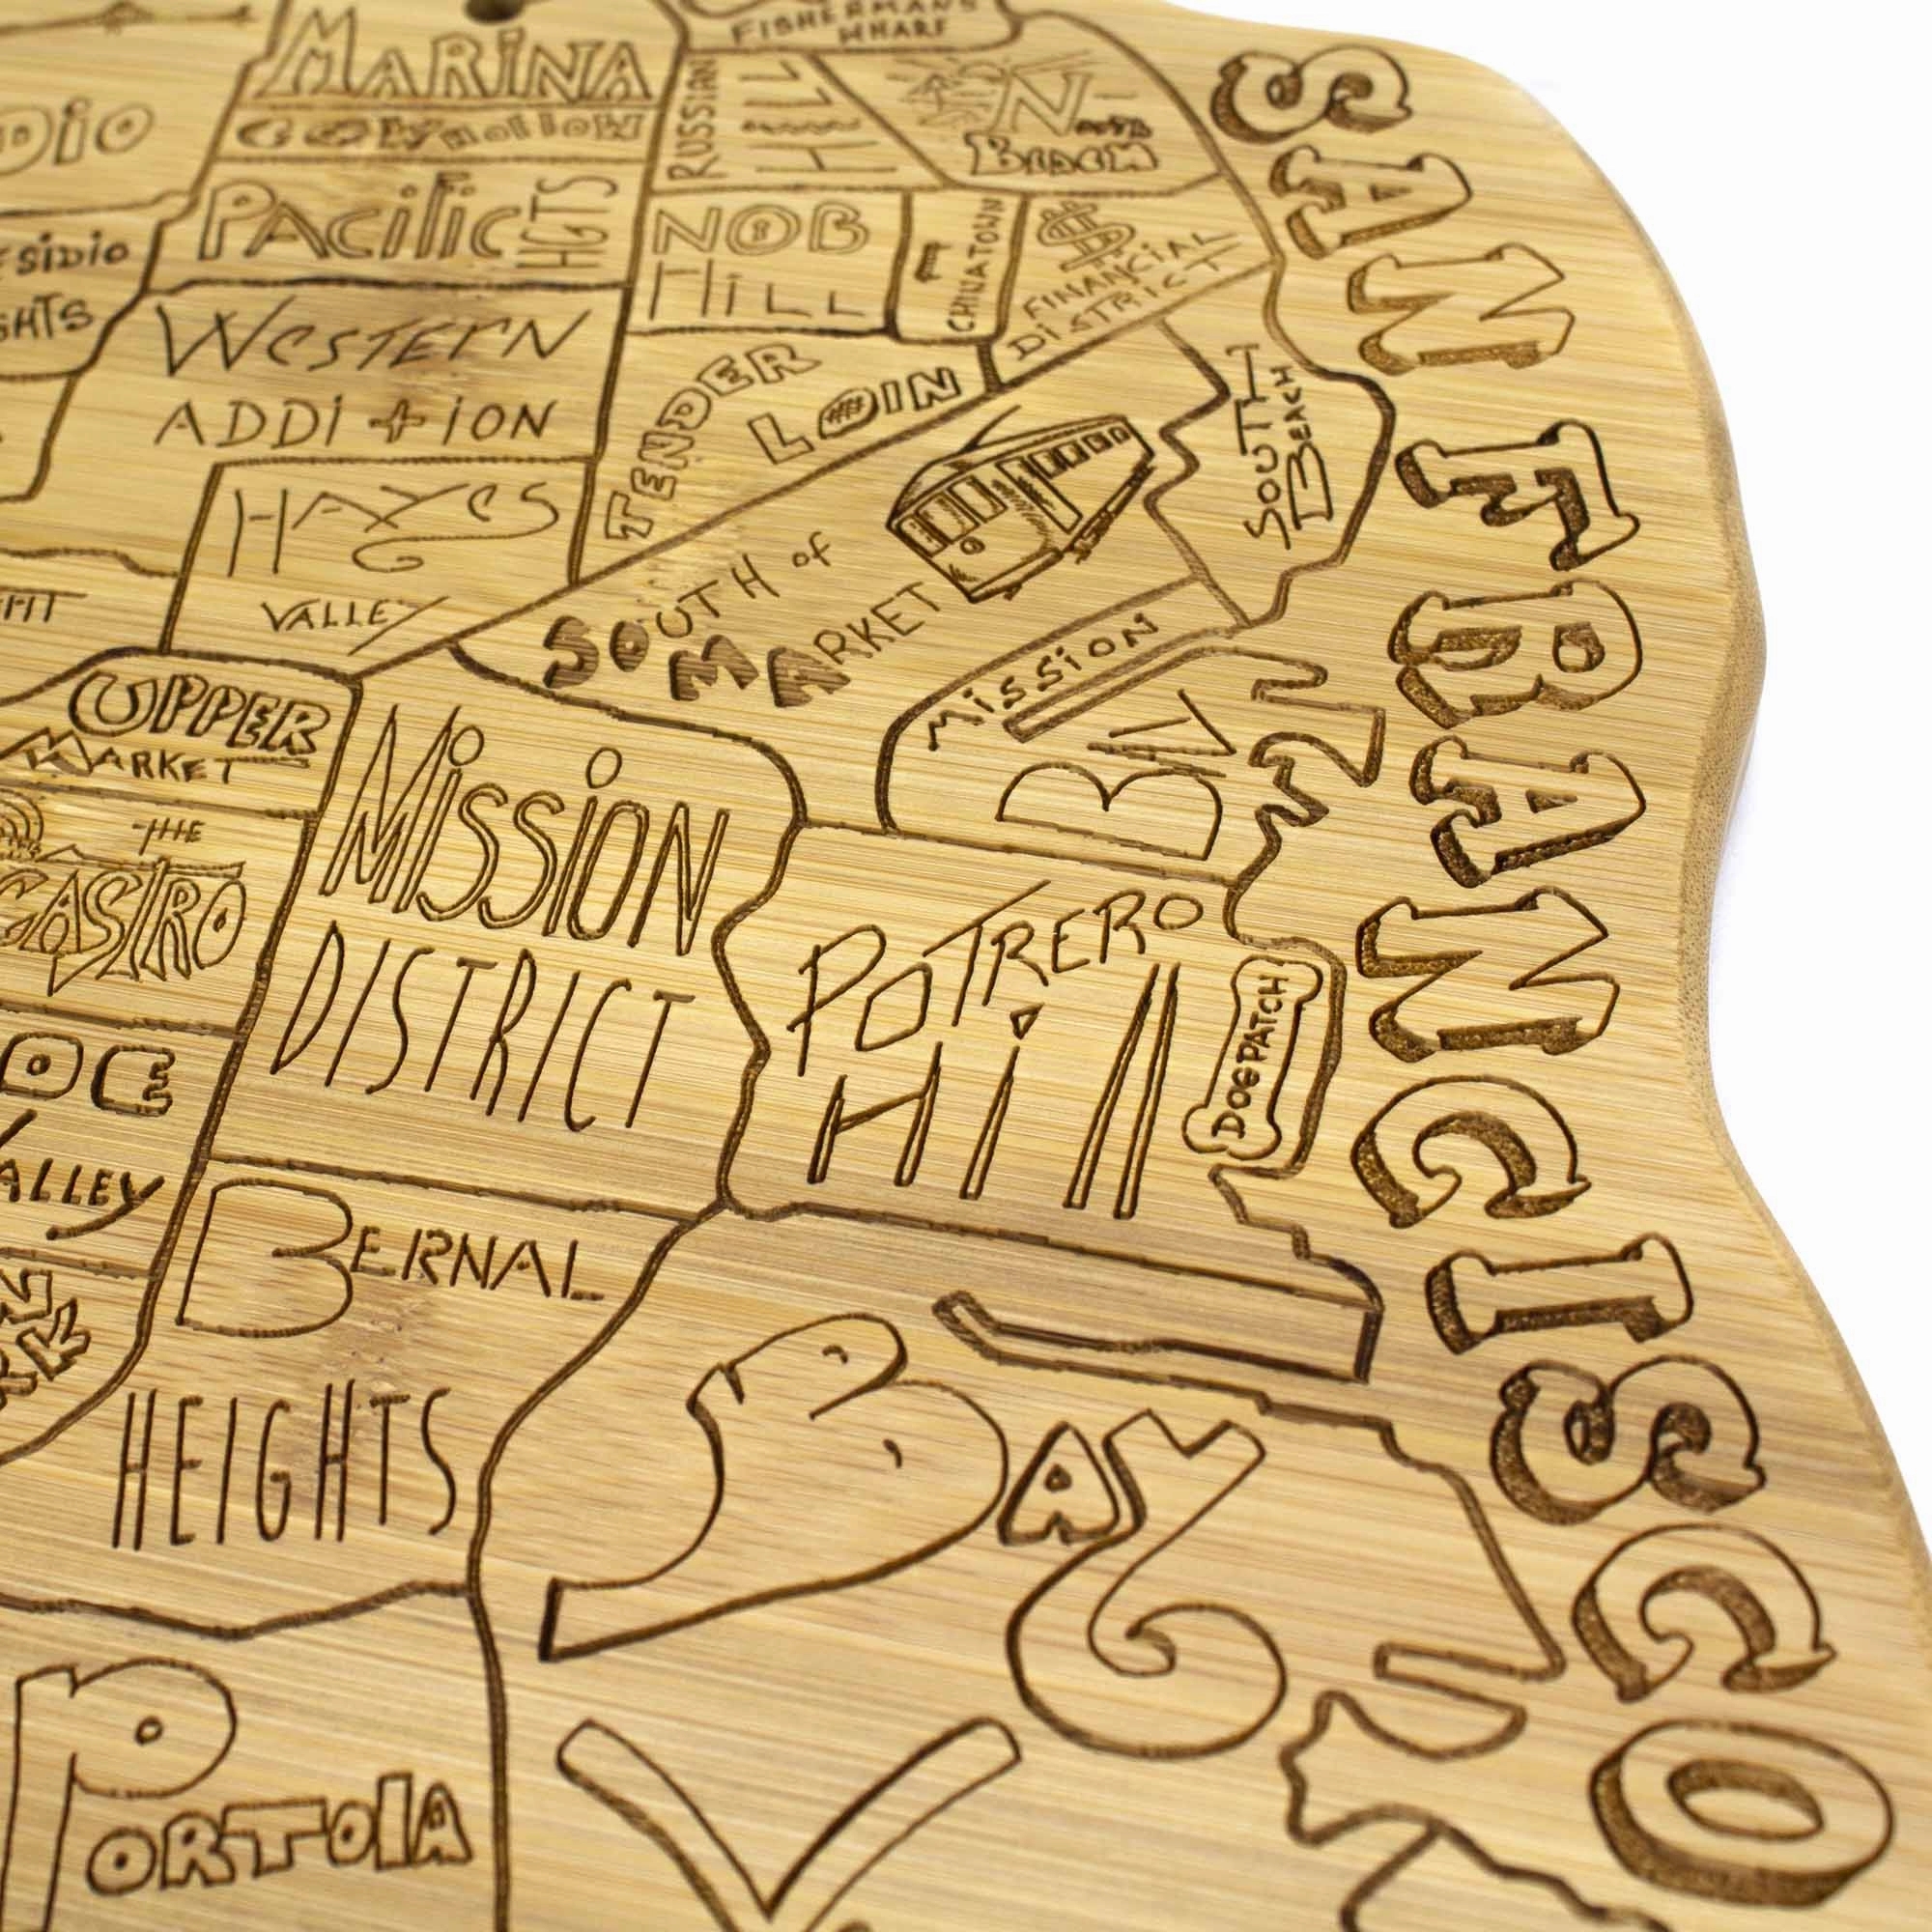 FISHERMAN'S
WHARF
MARINA
COW HOLLOW
RUSSIAN
HILL
NORTH
BEACH
DIO
PACIFIC
HGTS
NOB
HILL
CHINATOWN
$
FINANCIAL
DISTRICT
ESIDIO
GHTS
WESTERN
ADDITION
TENDER
LOIN
SOUTH
BEACH
HAYES
VALLEY
SOUTH of
MARKET
MISSION
BAY
UPPER
MARKET
MISSION
DISTRICT
THE
CASTRO
POTRERO
Hill
DOGPATCH
OE
ALLEY
BERNAL
HEIGHTS
BAY
V
PORTOLA
SAN FRANCISCO